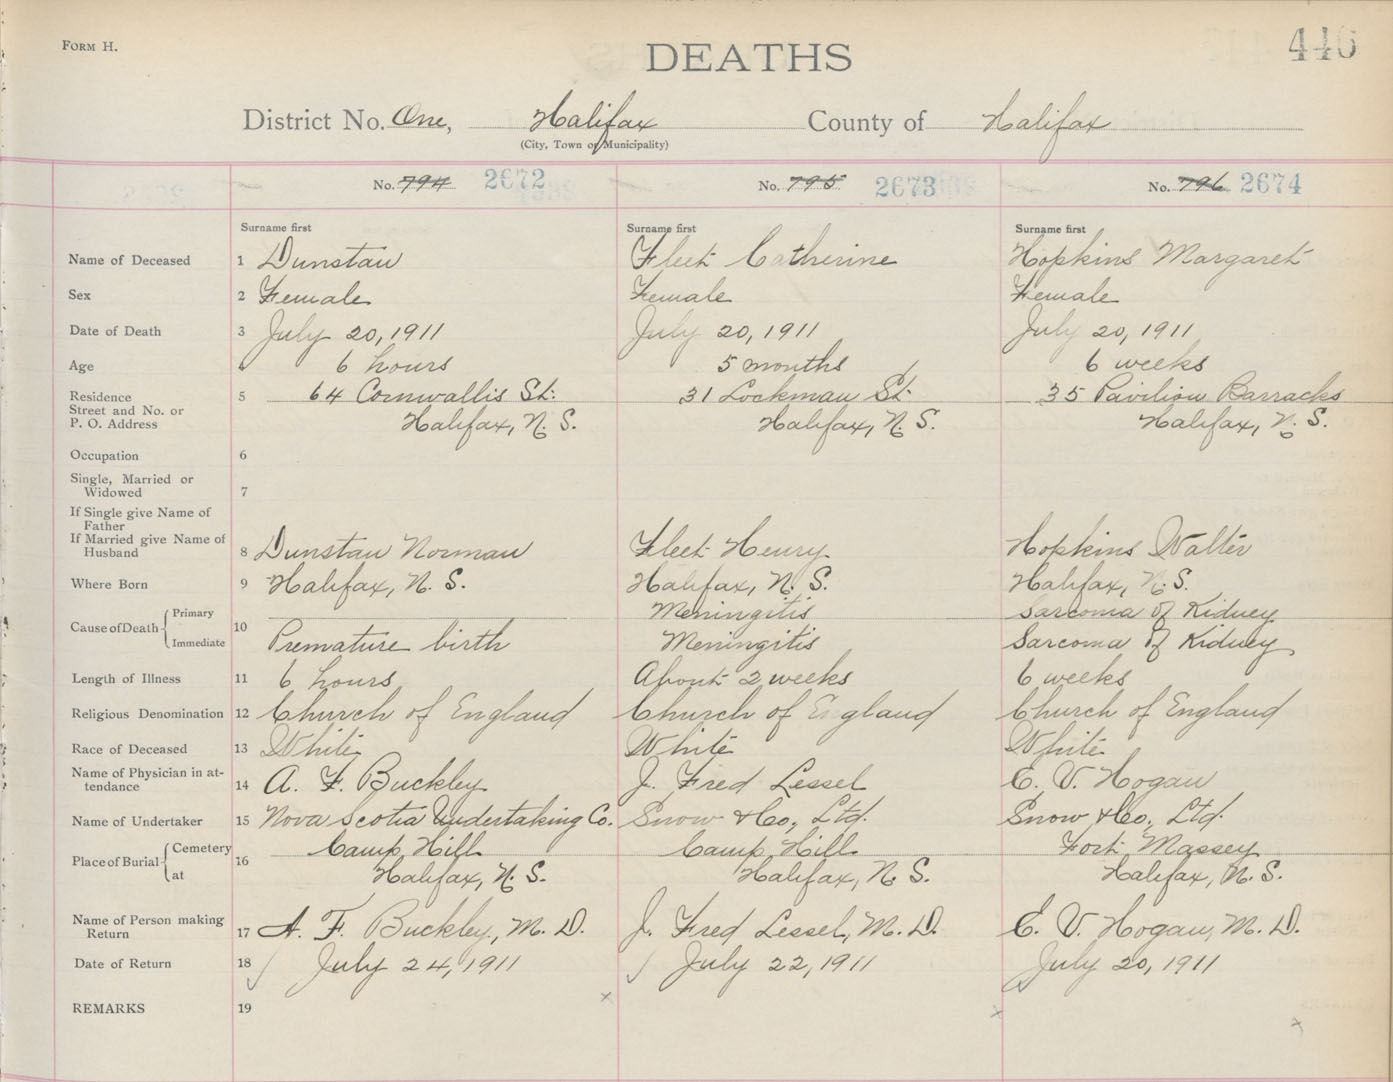 FORM H.
446
DEATHS
District No. One, Halifax County of Halifax
(City, Town or Municipality)
No. 794 2672 No. 795 2673 No. 796 2674
Surname first Surname first Surname first
Name of Deceased 1 Dunstan Fleet Catherine Hopkins Margaret
Sex 2 Female Female Female
Date of Death 3 July 20, 1911 July 20, 1911 July 20, 1911
Age 4 6 hours 5 months 6 weeks
Residence 5 64 Cornwallis St. 31 Lockman St. 35 Pavilion Barracks
Street and No. or
P. O. Address Halifax, N. S. Halifax, N. S. Halifax, N. S.
Occupation 6
Single, Married or
Widowed 7
If Single give Name of
Father
If Married give Name of
Husband 8 Dunstan Norman Fleet Henry Hopkins Walter
Where Born 9 Halifax, N. S. Halifax, N. S. Halifax, N. S.
Cause of Death Primary Meningitis Sarcoma of Kidney
10
Immediate Premature birth Meningitis Sarcoma of Kidney
Length of Illness 11 6 hours About 2 weeks 6 weeks
Religious Denomination 12 Church of England Church of England Church of England
Race of Deceased 13 White White White
Name of Physician in at-
tendance 14 A. F. Buckley J. Fred Lessel E. V. Hogan
Name of Undertaker 15 Nova Scotia Undertaking Co. Snow & Co., Ltd. Snow & Co., Ltd.
Place of Burial Cemetery 16 Camp Hill Camp Hill Fort Massey
at Halifax, N. S. Halifax, N. S. Halifax, N. S.
Name of Person making
Return 17 A. F. Buckley, M. D. J. Fred Lessel, M. D. E. V. Hogan, M. D.
Date of Return 18 July 24, 1911 July 22, 1911 July 20, 1911
REMARKS 19